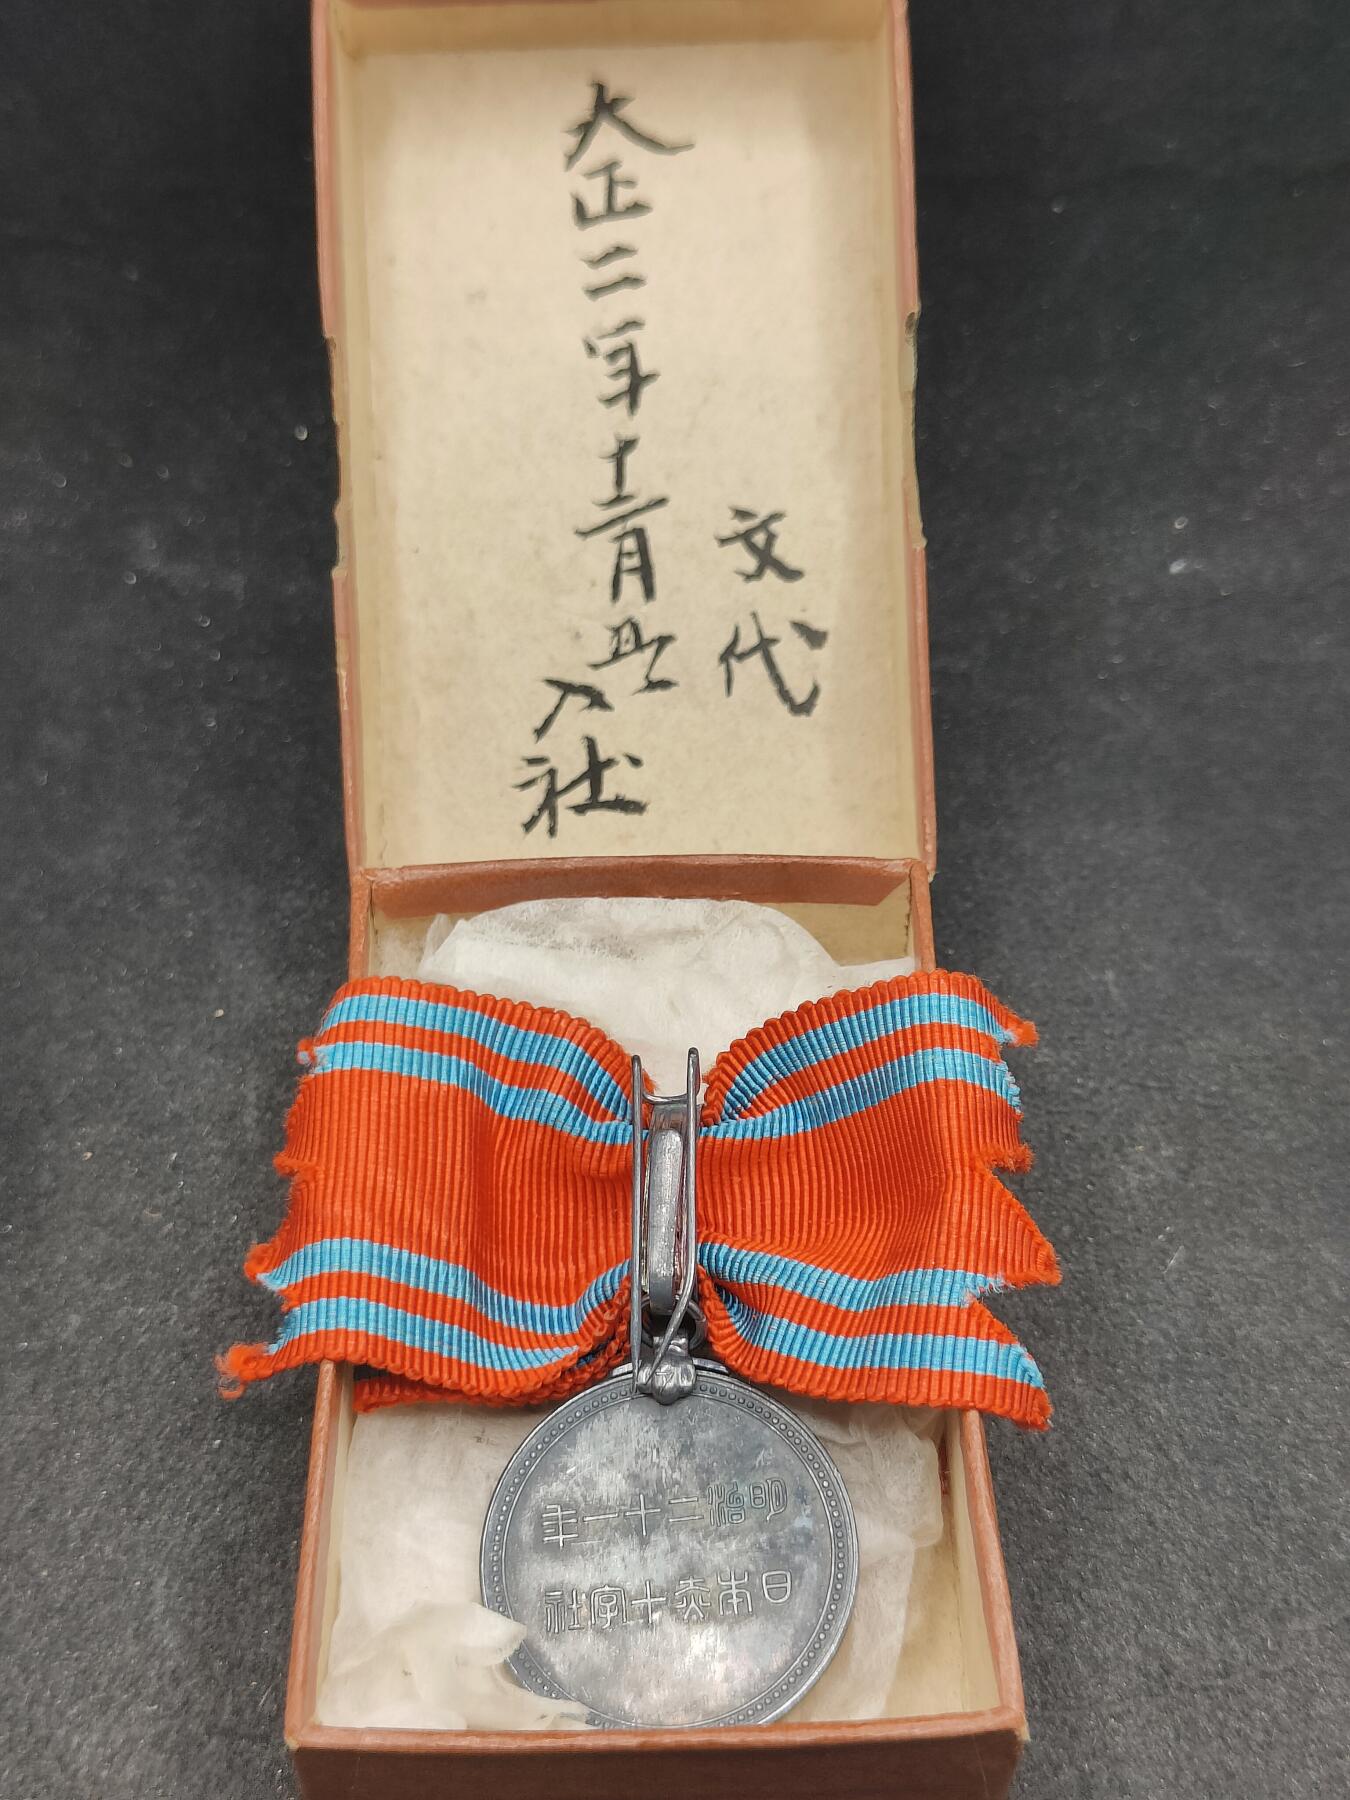 文代
大正二年十二月入社
明治二十一年
日本赤十字社